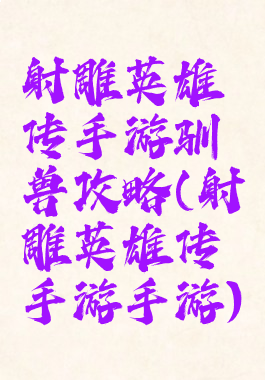 射雕英雄
传手游驯
兽攻略(射
雕英雄传
手游手游)